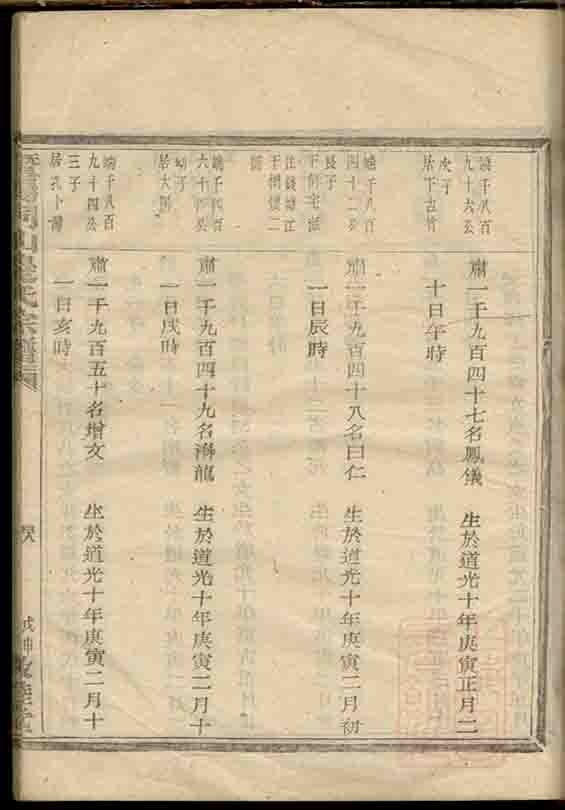 端千八百
九十六公
次子
肅一千九百四十七名鳳儀
生於道光十年庚寅正月二
十日午時
端千八百
四十二公
長子
肅一千九百四十八名曰仁
生於道光十年庚寅二月初
一日辰時
端千四百
六十
幼子
居大
肅一千九百四十九名沸龍
生於道光十年庚寅二月十
一日戌時
端千八百
九十四公
三子
居孔小灣
肅一千九百五十名增文
生於道光十年庚寅二月十
一日亥時
氏宗譜
戊申